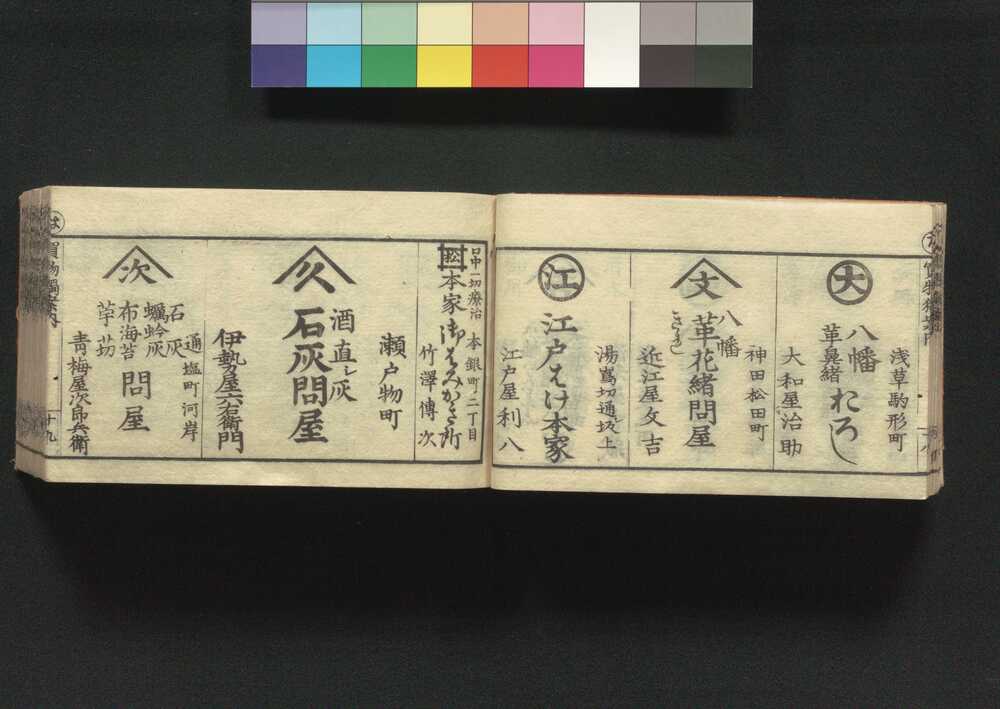 浅草駒形町
大
八幡
革鼻緒
おろし
大和屋治助
神田松田町
文
八幡
きれ
革花緒問屋
近江屋文吉
湯嶌切通坂上
江
江戸はけ本家
江戸屋利八
口中一切療治
本銀町二丁目
松
本家御はみがき所
竹澤傳次
瀬戸物町
久
酒直シ灰
石灰問屋
伊勢屋六右衛門
通塩町河岸
次
石灰
蠣蛤灰
布海苔
苧苆
問屋
青梅屋次郎兵衛
は
十九